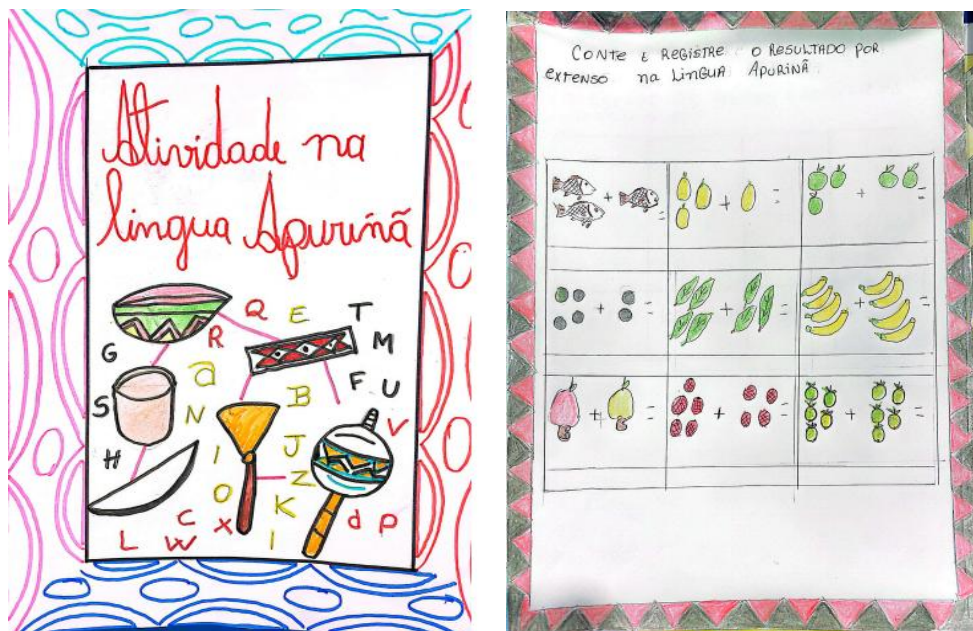 Atividade na
lingua Apurinã
Q E T
G R M
a F U
S N B V
H I J
O Z
X K d P
L C W I
CONTE E REGISTRE O RESULTADO POR
extenso na LinGUA APURINÃ
+ = + = + =
+ = + = + =
+ = + = + =